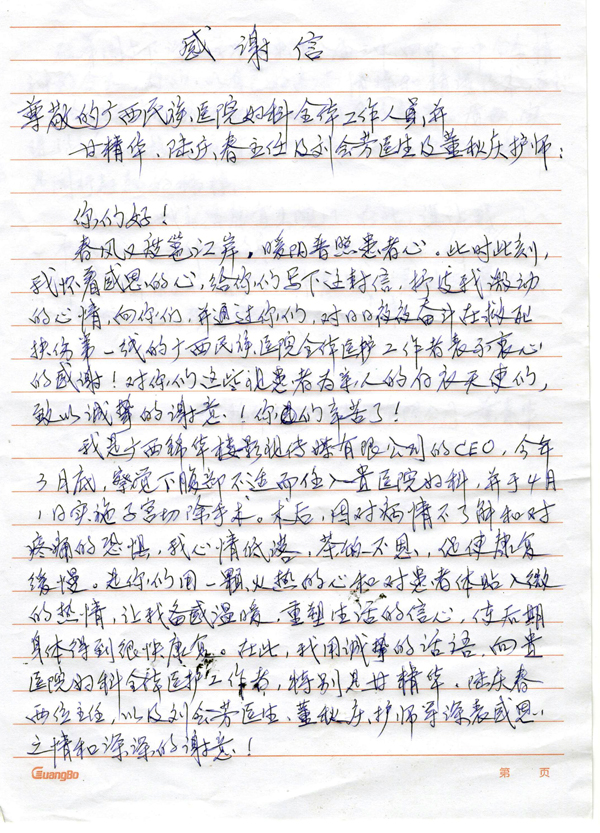 感谢信
尊敬的广西民族医院妇科全体工作人员,并
甘精华、陆庆春主任及刘会芳医生及董秋庆护师:
你们好!
春风又被邕江岸,暖阳普照患者心。此时此刻,
我怀着感恩的心,给你们写下这封信,抒发我激动
的心情,向你们,并通过你们,对日日夜夜奋斗在救死
扶伤第一线的广西民族医院全体医护工作者表示衷心
的感谢!对你们这些视患者为亲人的白衣天使们,
致以诚挚的谢意!你们辛苦了!
我是广西锦华楼影视传媒有限公司的CEO,今年
3月底,察觉下腹部不适而住入贵医院妇科,并于4月
1日实施子宫切除手术。术后,因对病情不了解和对
疼痛的恐惧,我心情低落,茶饭不思,使健康复
缓慢。是你们用一颗火热的心和对患者体贴入微
的热情,让我备感温暖,重塑生活的信心,使后期
身体得到很快康复。在此,我用诚挚的话语,向贵
医院妇科全体医护工作者,特别是甘精华、陆庆春
两位主任,以及刘会芳医生、董秋庆护师等深表感恩
之情和深深的谢意!
GuangBo
第 页